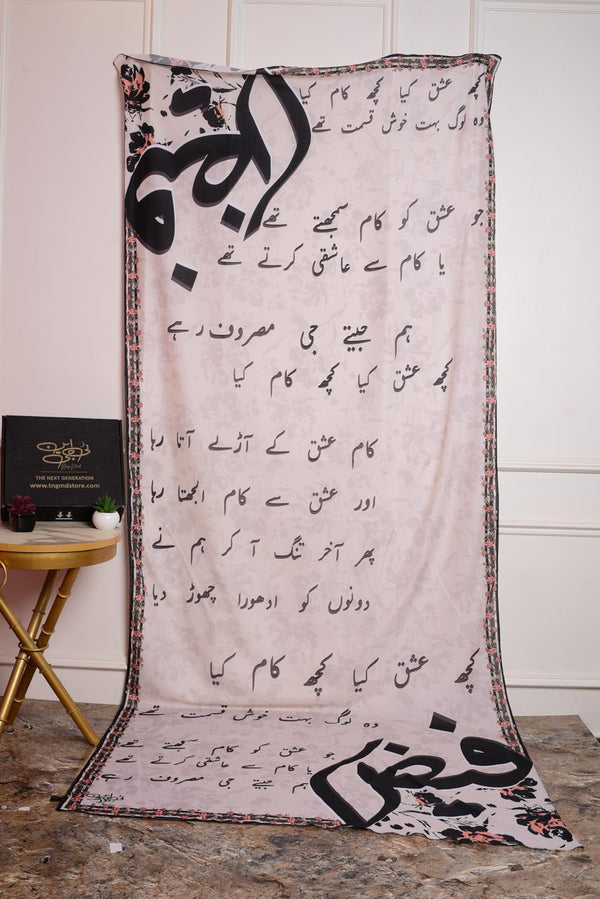 کچھ عشق کیا کچھ کام کیا
وہ لوگ بہت خوش قسمت تھے
جو عشق کو کام سمجھتے تھے
یا کام سے عاشقی کرتے تھے
ہم جیتے جی مصروف رہے
کچھ عشق کیا کچھ کام کیا
کام عشق کے آڑے آتا رہا
اور عشق سے کام الجھتا رہا
پھر آخر تنگ آ کر ہم نے
دونوں کو ادھورا چھوڑ دیا
کچھ عشق کیا کچھ کام کیا
وہ لوگ بہت خوش قسمت تھے
جو عشق کو کام سمجھتے تھے
یا کام سے عاشقی کرتے تھے
ہم جیتے جی مصروف رہے
فیض
THE NEXT GENERATION
www.tngmdstore.com